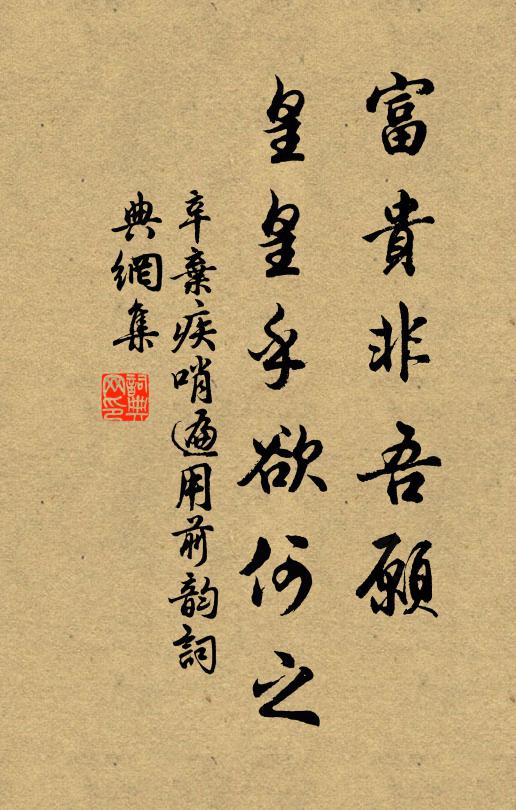 富貴非吾願
皇皇乎欲何之
辛棄疾哨遍用前韵詞
典網集
詞典網印